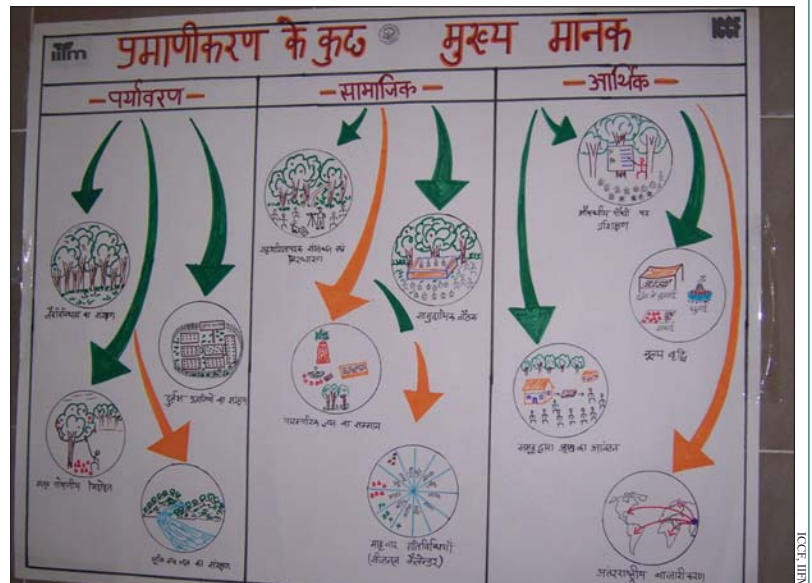 iifm
प्रमाणीकरण के कुछ मुख्य मानक
ICCF
पर्यावरण
सामाजिक
आर्थिक
जैवविविधता का संरक्षण
दुर्लभ प्रजातियों का संरक्षण
सतत पोषणीय विदोहन
भूमि एवं जल का संरक्षण
सामुदायिक बैठक
पारम्परिक ज्ञान का सम्मान
माह वार गतिविधियाँ
(सीजनल कैलेन्डर)
औषधीय पौधों पर
प्रशिक्षण
मूल्य वृद्धि
समूह द्वारा मूल्य का आंकलन
अंतरराष्ट्रीय बाजारीकरण
ICCF, IIFM